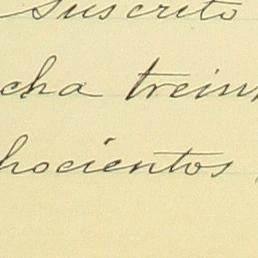 suscrito
cha trein
hocientos